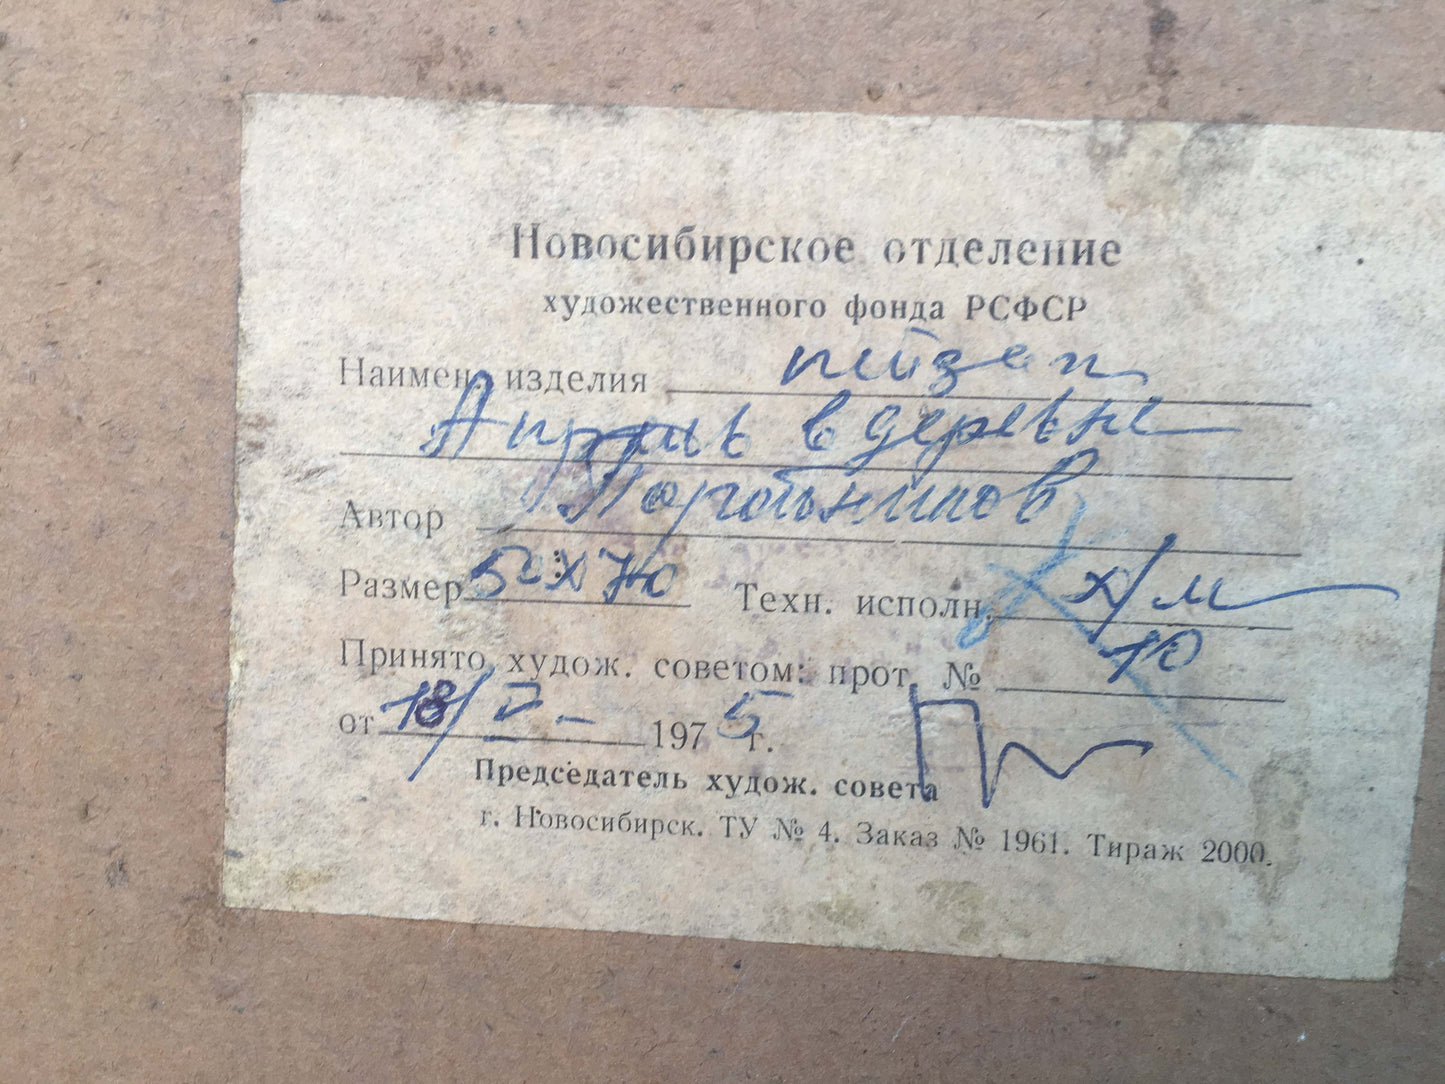 Новосибирское отделение
художественного фонда РСФСР
Наимен. изделия пейзаж
Апрель в деревне
Автор
Размер 50х70 Техн. исполн. х/м
Принято худож. советом: прот. № 10
от 18/V- 1975 г.
Председатель худож. совета
г. Новосибирск. ТУ № 4. Заказ № 1961. Тираж 2000.